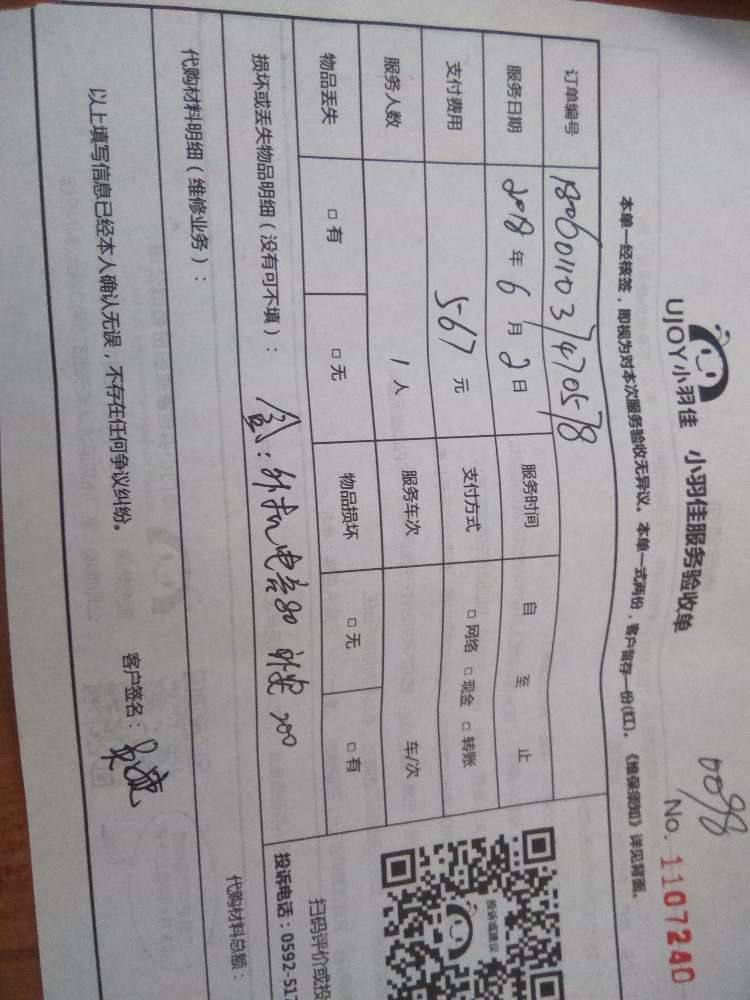 UJOY小羽佳 小羽佳服务验收单
0098
No. 1107240
本单一经核签，即视为对本次服务验收无异议。本单一式两份，客户留存一份(红)。《维保须知》详见背面。
订单编号 1806011037470578
服务日期 2018 年 6 月 2 日 服务时间 自 至 止
支付费用 567 元 支付方式 □ 网络 □ 现金 □ 转账
服务人数 1 人 服务车次 车/次
物品丢失 □ 有 □ 无 物品损坏 □ 无 □ 有
损坏或丢失物品明细（没有可不填）： 外机电容80 200
代购材料明细（维修业务）：
代购材料总额：
以上填写信息已经本人确认无误，不存在任何争议纠纷。 客户签名：
投诉或建议
扫码评价或投
投诉电话：0592-517